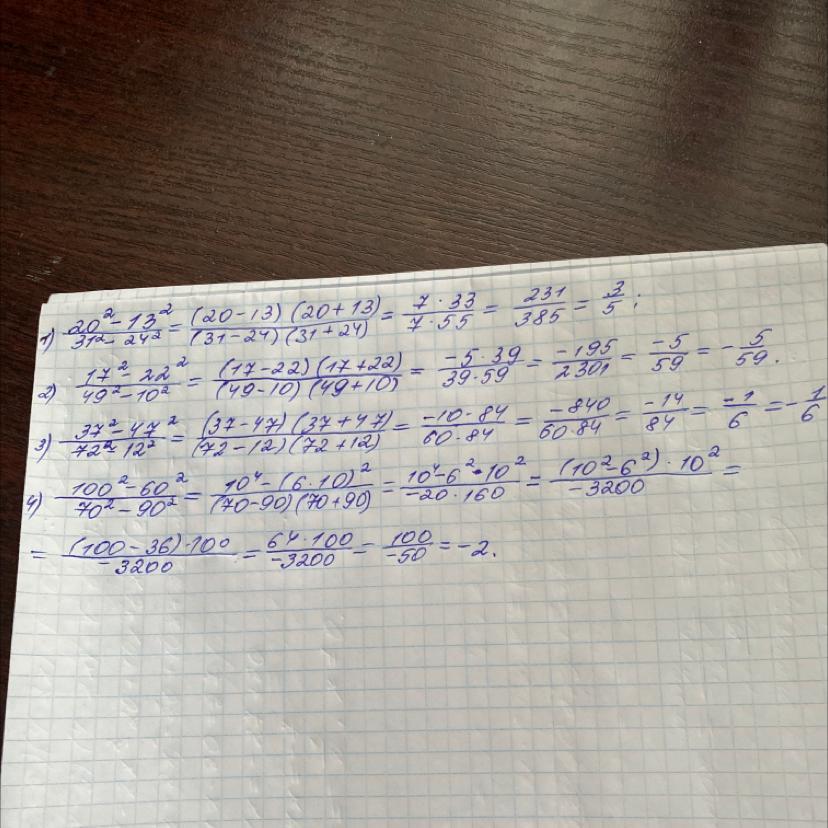 1) (20² - 13²)/(31² - 24²) = ((20-13)(20+13))/((31-24)(31+24)) = (7·33)/(7·55) = 231/385 = 3/5;
2) (17² - 22²)/(49² - 10²) = ((17-22)(17+22))/((49-10)(49+10)) = (-5·39)/(39·59) = -195/2301 = -5/59 = -5/59.
3) (37² - 47²)/(72² - 12²) = ((37-47)(37+47))/((72-12)(72+12)) = (-10·84)/(60·84) = -840/(60·84) = -14/84 = -1/6 = -1/6
4) (100² - 60²)/(70² - 90²) = (10⁴ - (6·10)²)/((70-90)(70+90)) = (10⁴ - 6²·10²)/(-20·160) = ((10² - 6²)·10²)/(-3200) =
= ((100-36)·100)/(-3200) = (64·100)/(-3200) = 100/(-50) = -2.